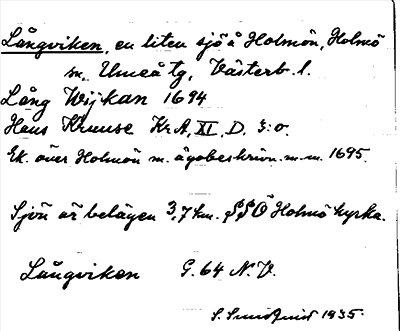 Långviken, en liten sjö å Holmön, Holmö
sn, Umeå tg, Västerb. l.
Lång Wijkan 1694
Hans Kruuse KrA, XI, D. 5:o.
Ek. över Holmön m. ägobeskrivn. m.m. 1695.
Sjön är belägen 3,7 km. SSO Holmö kyrka.
Långviken G. 64 N. V.
S. Sundquist 1935.